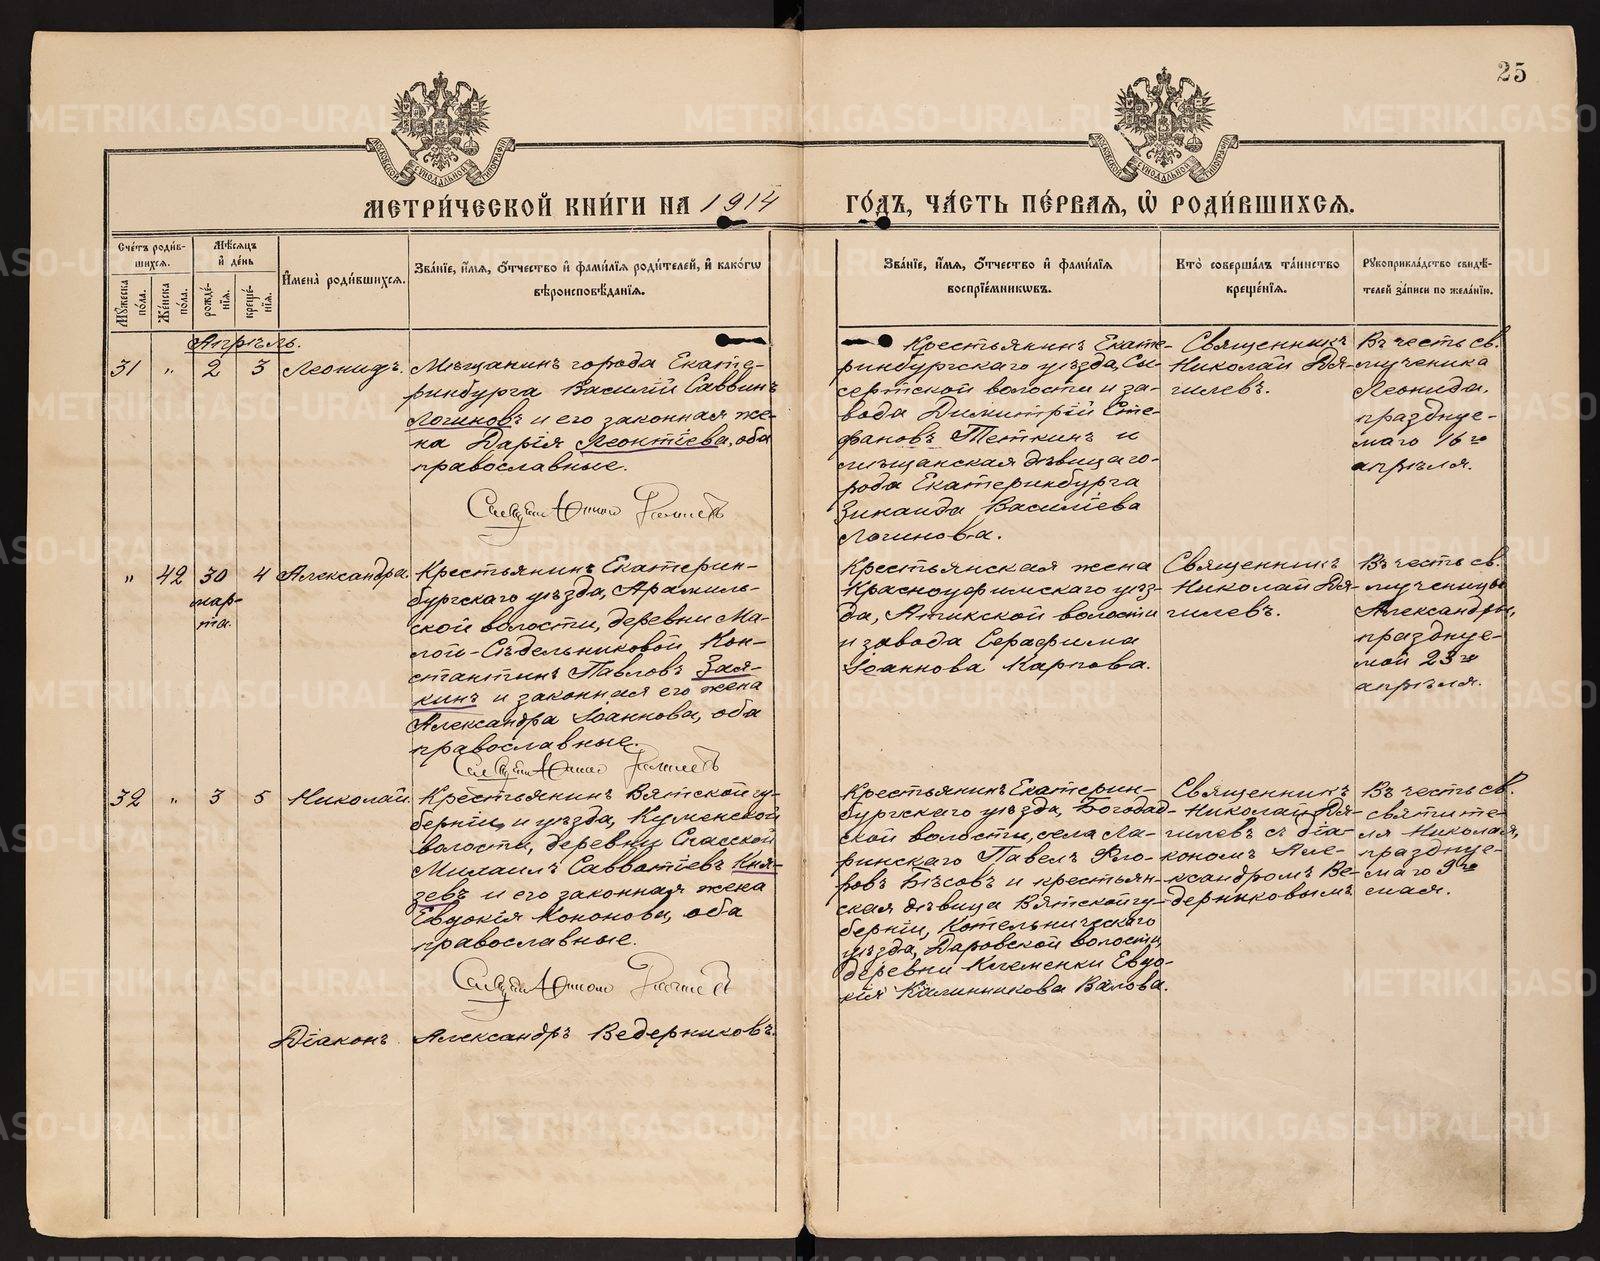 25
МЕТРИ́ЧЕСКОЙ КНИ́ГИ НА 1914 ГО́ДЪ, ЧА́СТЬ ПЕ́РВАЯ, Ѿ РОДИ́ВШИХСЯ.
Сче́тъ роди́в-
шихся.
Мꙋ́жеска по́ла.
Же́нска по́ла.
Мѣ́сяцъ
и҆ де́нь
рожде́-
нїя.
креще́-
нїя.
И҆мена̀ роди́вшихся.
Зва́нїе, и҆́мя, ѻ҆́тчество и҆ фами́лїя роди́телей, и҆ како́гѡ
вѣроисповѣ́данїя.
Зва́нїе, и҆́мя, ѻ҆́тчество и҆ фами́лїя
воспрїе́мникѡвъ.
Кто̀ соверша́лъ та́инство
креще́нїя.
Рꙋкоприкла́дство свидѣ́-
телей за́писи по жела́нїю.
Апрѣль.
31 " 2 3 Леонидъ.
Мѣщанинъ города Екате-
ринбурга Василій Саввинъ
Логиновъ и его законная же-
на Дарія Леонтіева, оба
православные.
Крестьянинъ Екате-
ринбургскаго уѣзда, Сы-
сертской волости и за-
вода Димитрій Сте-
фановъ Теткинъ и
мѣщанская дѣвица го-
рода Екатеринбурга
Зинаида Василіева
Логинова.
Священникъ
Николай Дя-
гилевъ.
Въ честь св.
мученика
Леонида,
празднуе-
маго 16го
апрѣля.
" 42 30 4 Александра.
мар-
та.
Крестьянинъ Екатерин-
бургскаго уѣзда, Арамиль-
ской волости, деревни Ма-
лой-Сѣдельниковой Кон-
стантинъ Павловъ Зая-
кинъ и законная его жена
Александра Іоаннова, оба
православные.
Крестьянская жена
Красноуфимскаго уѣз-
да, Атикской волости
и завода Серафима
Іоаннова Карпова.
Священникъ
Николай Дя-
гилевъ.
Въ честь св.
мученицы
Александры,
празднуе-
мой 23го
апрѣля.
32 " 3 5 Николай.
Крестьянинъ Вятской гу-
берніи, и уѣзда, Куменской
волости, деревни Спасской
Михаилъ Савватіевъ Кня-
зевъ и его законная жена
Евдокія Кононова, оба
православные.
Крестьянинъ Екатерин-
бургскаго уѣзда, Богодад-
ской волости, села Ла-
ринскаго Павелъ Фло-
ровъ Бѣсовъ и крестьян-
ская дѣвица Вятской гу-
берніи, Котельническаго
уѣзда, Даровской волости,
деревни Клеменки Евдо-
кія Калинникова Валова.
Священникъ
Николай Дя-
гилевъ съ діа-
кономъ Але-
ксандромъ Ве-
дерниковымъ
Въ честь св.
святите-
ля Николая,
празднуе-
маго 9го
мая.
Діаконъ Александръ Ведерниковъ.
METRIKI.GASO-URAL.RU